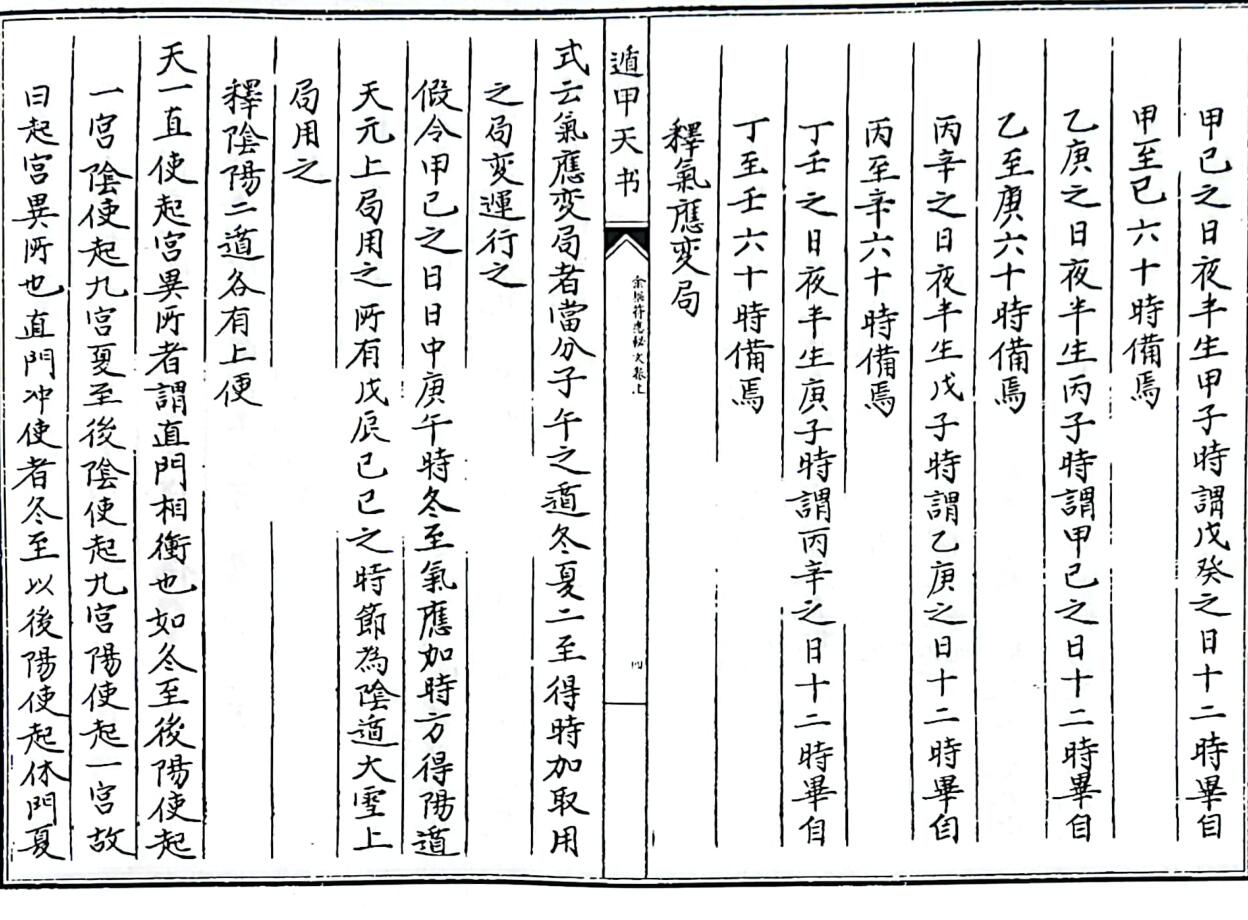 甲己之日夜半生甲子時謂戊癸之日十二時畢自
甲至己六十時備焉
乙庚之日夜半生丙子時謂甲己之日十二時畢自
乙至庚六十時備焉
丙辛之日夜半生戊子時謂乙庚之日十二時畢自
丙至辛六十時備焉
丁壬之日夜半生庚子時謂丙辛之日十二時畢自
丁至壬六十時備焉
釋氣應变局
遁甲天书
四
式云氣應变局者當分子午之遁冬夏二至得時加取用
之局变運行之
假令甲己之日日中庚午時冬至氣應加時方得陽遁
天元上局用之所有戊辰己巳之時節為陰遁大雪上
局用之
釋陰陽二遁各有上便
天一直使起宮異所者謂直門相衝也如冬至後陽使起
一宮陰使起九宮夏至後陰使起九宮陽使起一宮故
曰起宮異所也直門冲使者冬至以後陽使起休門夏